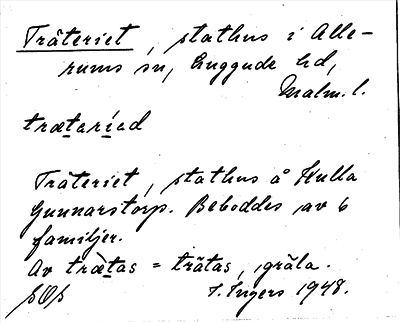 Träteriet, stathus i Alle-
rums sn, Luggude hd,
Malm. l.
trætəríəd
Träteriet, stathus å Kulla
Gunnarstorp. Beboddes av 6
familjer.
Av trætas = trätas, gräla.
I. Ingers 1948.